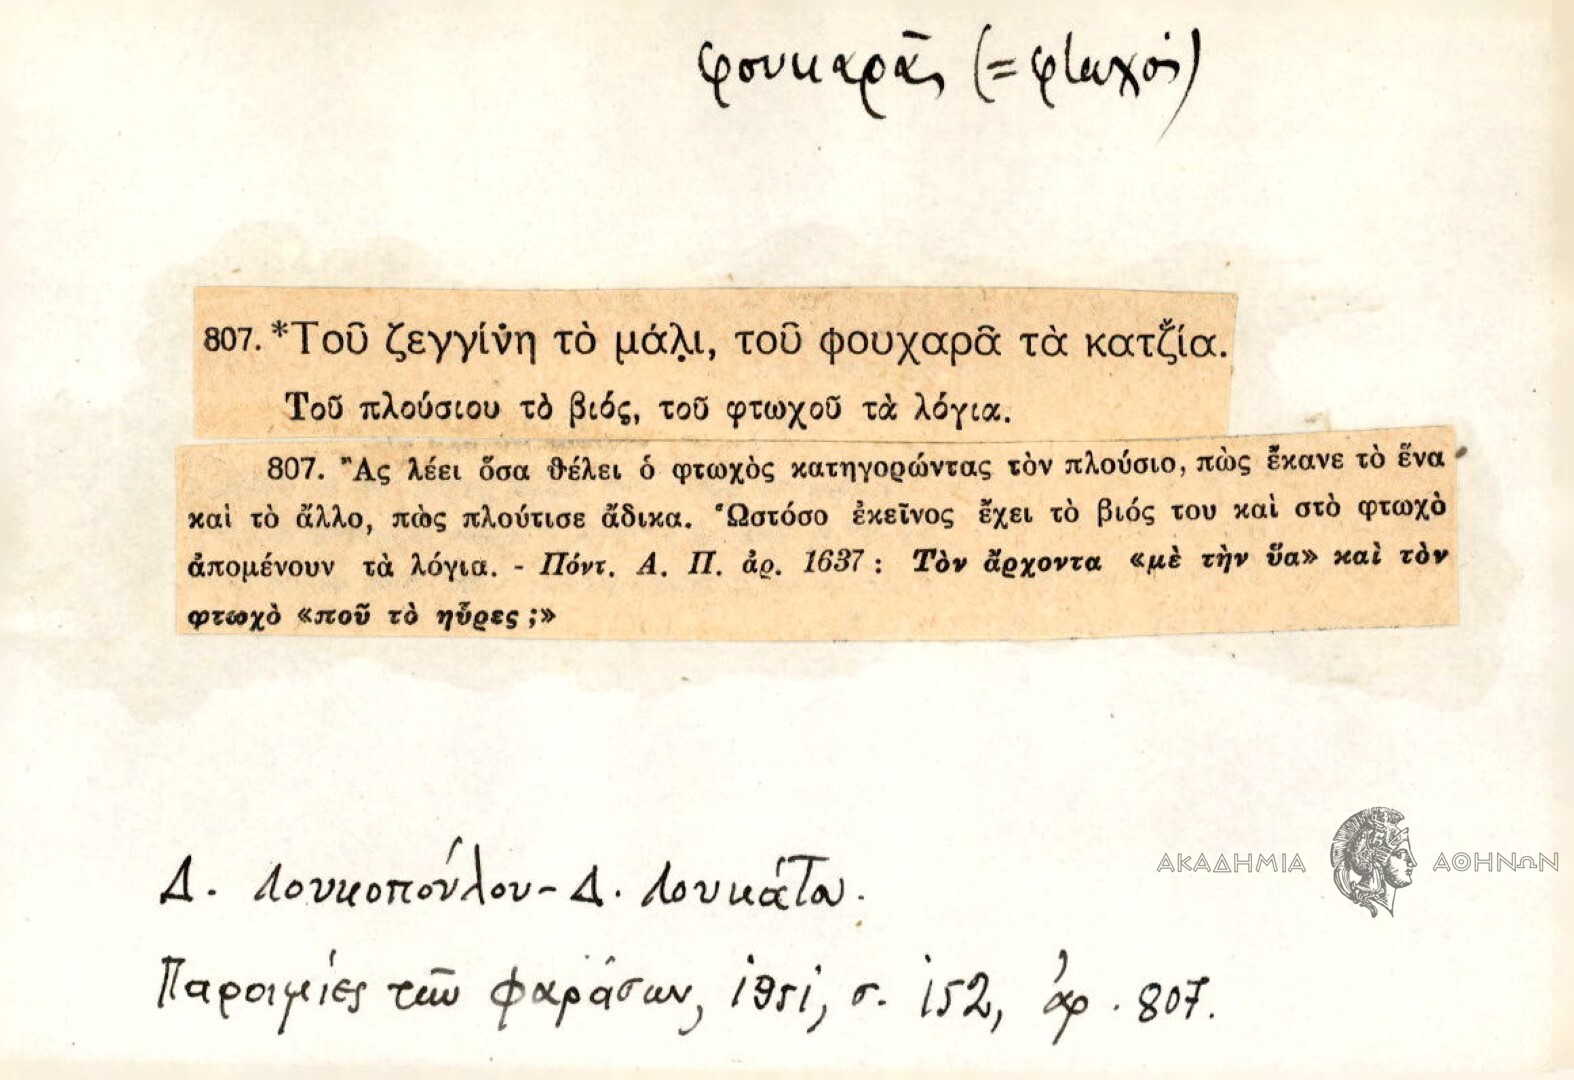 φουκαρᾶς (= φτωχός)
807. *Τοῦ ζεγγίν̇η τὸ μάλ̣ι, τοῦ φουχαρᾶ τὰ κατζ̌ία.
Τοῦ πλούσιου τὸ βιός, τοῦ φτωχοῦ τὰ λόγια.
807. Ἂς λέει ὅσα θέλει ὁ φτωχὸς κατηγορώντας τὸν πλούσιο, πὼς ἔκανε τὸ ἕνα
καὶ τὸ ἄλλο, πὼς πλούτισε ἄδικα. Ὡστόσο ἐκεῖνος ἔχει τὸ βιός του καὶ στὸ φτωχὸ
ἀπομένουν τὰ λόγια. - Πόντ. Α. Π. ἀρ. 1637 : Τὸν ἄρχοντα «μὲ τὴν ὕα» καὶ τὸν
φτωχὸ «ποῦ τὸ ηὗρες ;»
ΑΚΑΔΗΜΙΑ ΑΘΗΝΩΝ
Δ. Λουκοπούλου - Δ. Λουκάτου.
Παροιμίες τῶν Φαράσων, 1951, σ. 152, ἀρ. 807.